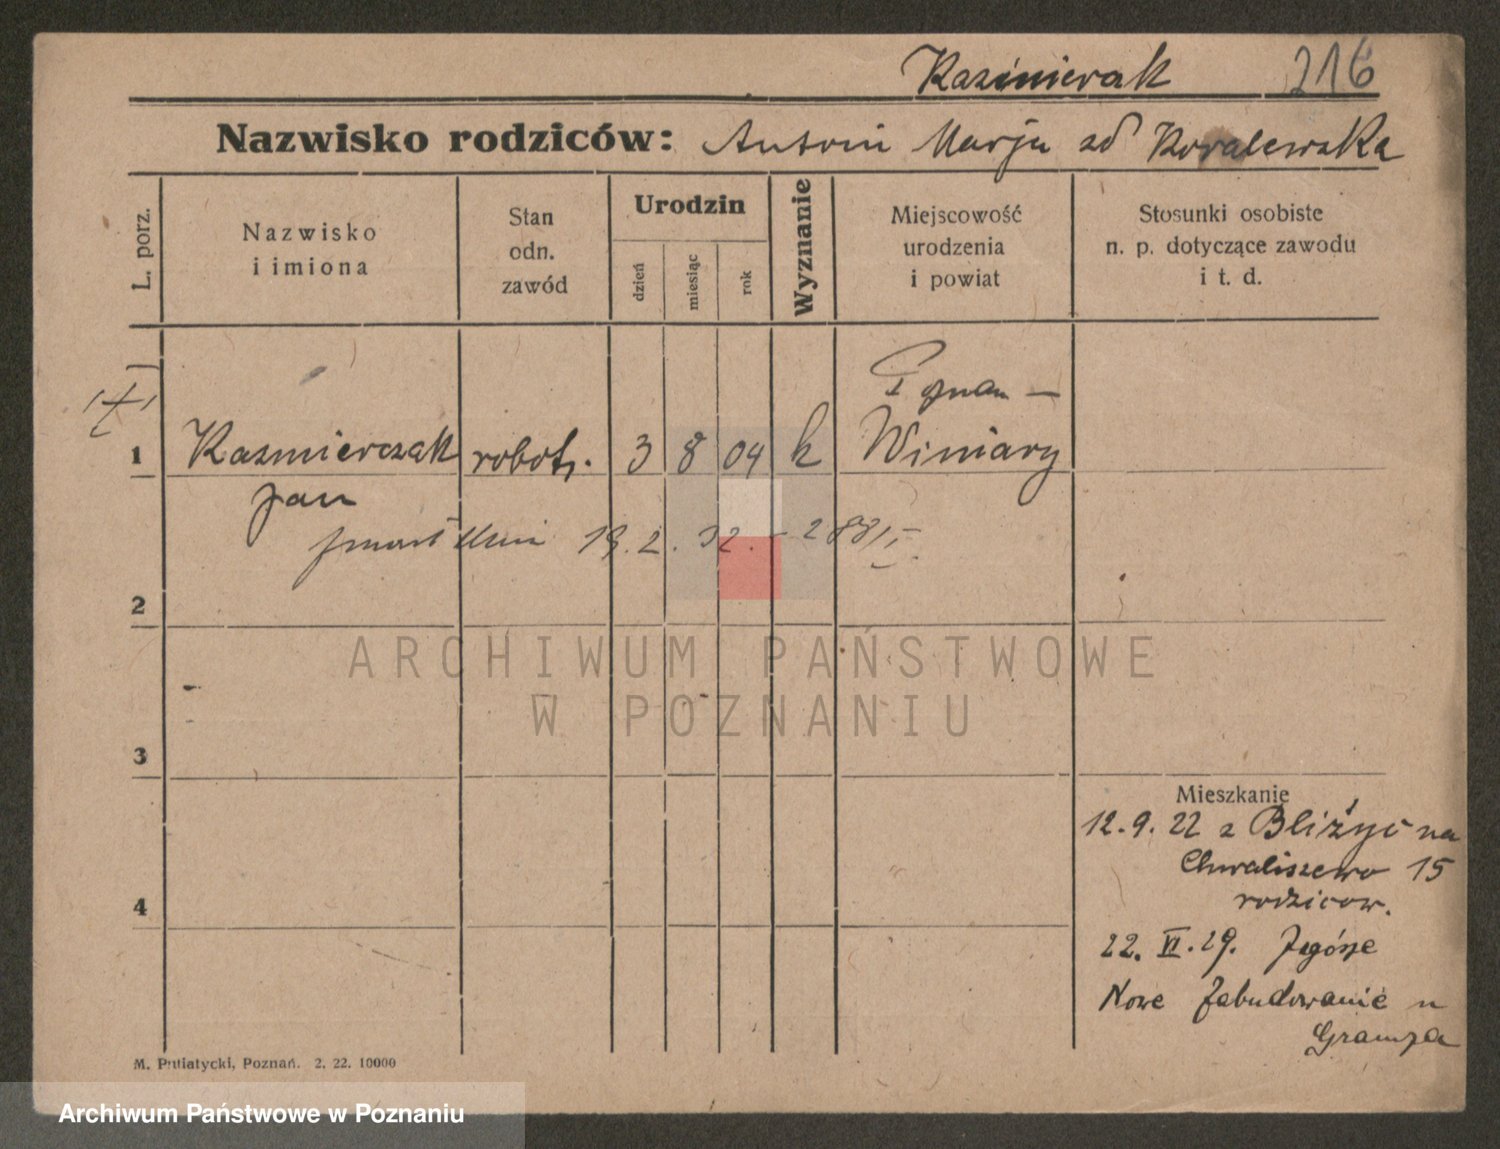 Kazimierak 216
Nazwisko rodziców: Antoni Marja zd Kowalewska
L. porz.
Nazwisko
i imiona
Stan
odn.
zawód
Urodzin
dzień
miesiąc
rok
Wyznanie
Miejscowość
urodzenia
i powiat
Stosunki osobiste
n. p. dotyczące zawodu
i t. d.
Poznań —
1 Kazmierczak robotn. 3 8 04 k Winiary
Jan
zmarł dnia 19.2.32. - 288/
2
ARCHIWUM PAŃSTWOWE
W POZNANIU
3
Mieszkanie
12.9.22 z Bliżyc na
Chwaliszewo 15
4 rodziców.
22. VI. 29. Zagórze
Nowe Zabudowanie u
M. Putiatycki, Poznań. 2. 22. 10000
Archiwum Państwowe w Poznaniu